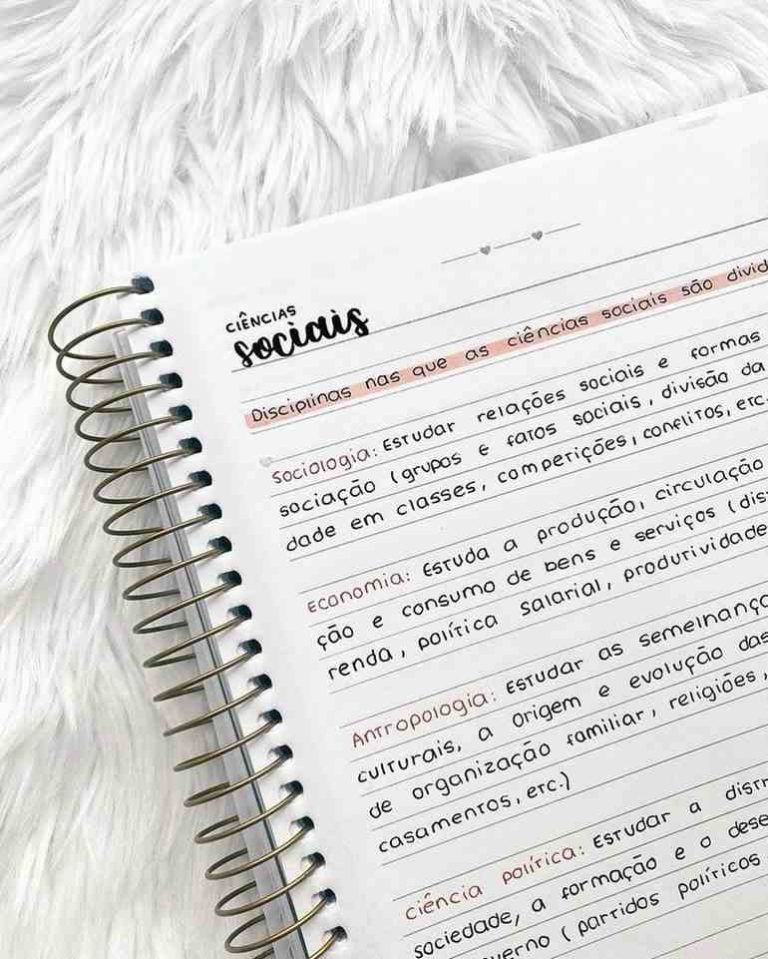 CIÊNCIAS
sociais
Disciplinas nas que as ciências sociais são divid
Sociologia: Estudar relações sociais e formas
sociação (grupos e fatos sociais, divisão da
dade em classes, competições, conflitos, etc.
Economia: Estuda a produção, circulação
ção e consumo de bens e serviços (dis
renda, política salarial, produtividade
Antropologia: Estudar as semelhanç
culturais, a origem e evolução das
de organização familiar, religiões,
casamentos, etc.)
ciência política: Estudar a distr
sociedade, a formação e o dese
verno (partidos políticos